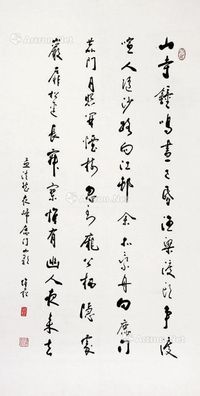 山寺鐘鳴晝已昏漁梁渡頭爭渡
喧人随沙路向江邨余亦乘舟向鹿门
鹿门月照開煙樹忽到龐公棲隐處
巖扉松逕長寂寥惟有幽人夜来去
孟浩然夜歸鹿门山歌